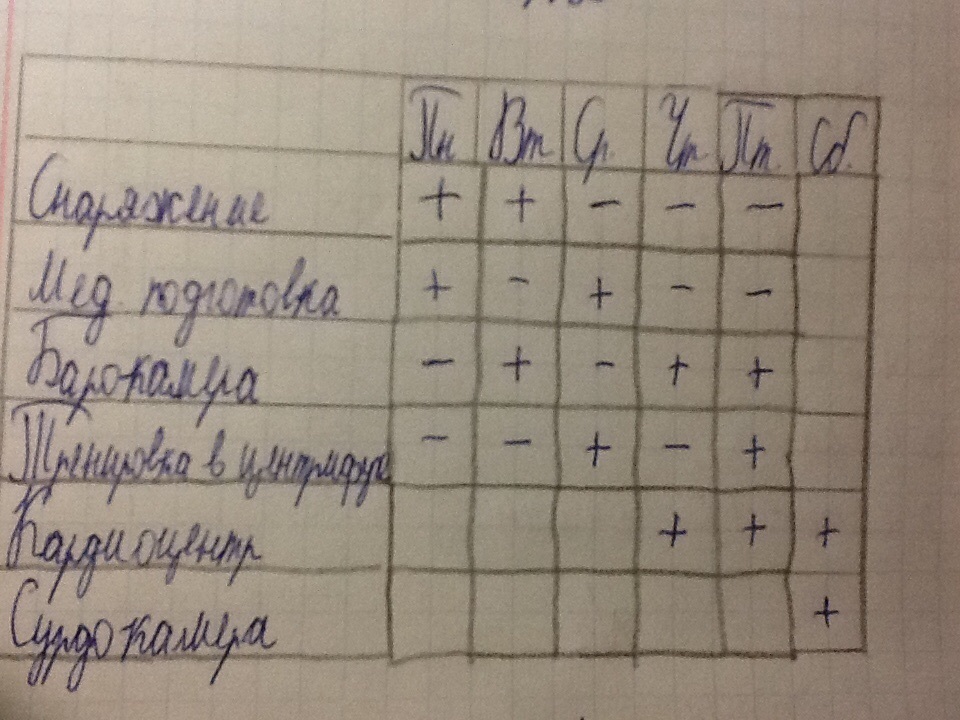 Пн Вт Ср. Чт Пт. Сб.
Снаряжение + + - - -
Мед. подготовка + - + - -
Барокамера - + - + +
Тренировка в центрифуге - - + - +
Кардиоцентр + + +
Сурдокамера +